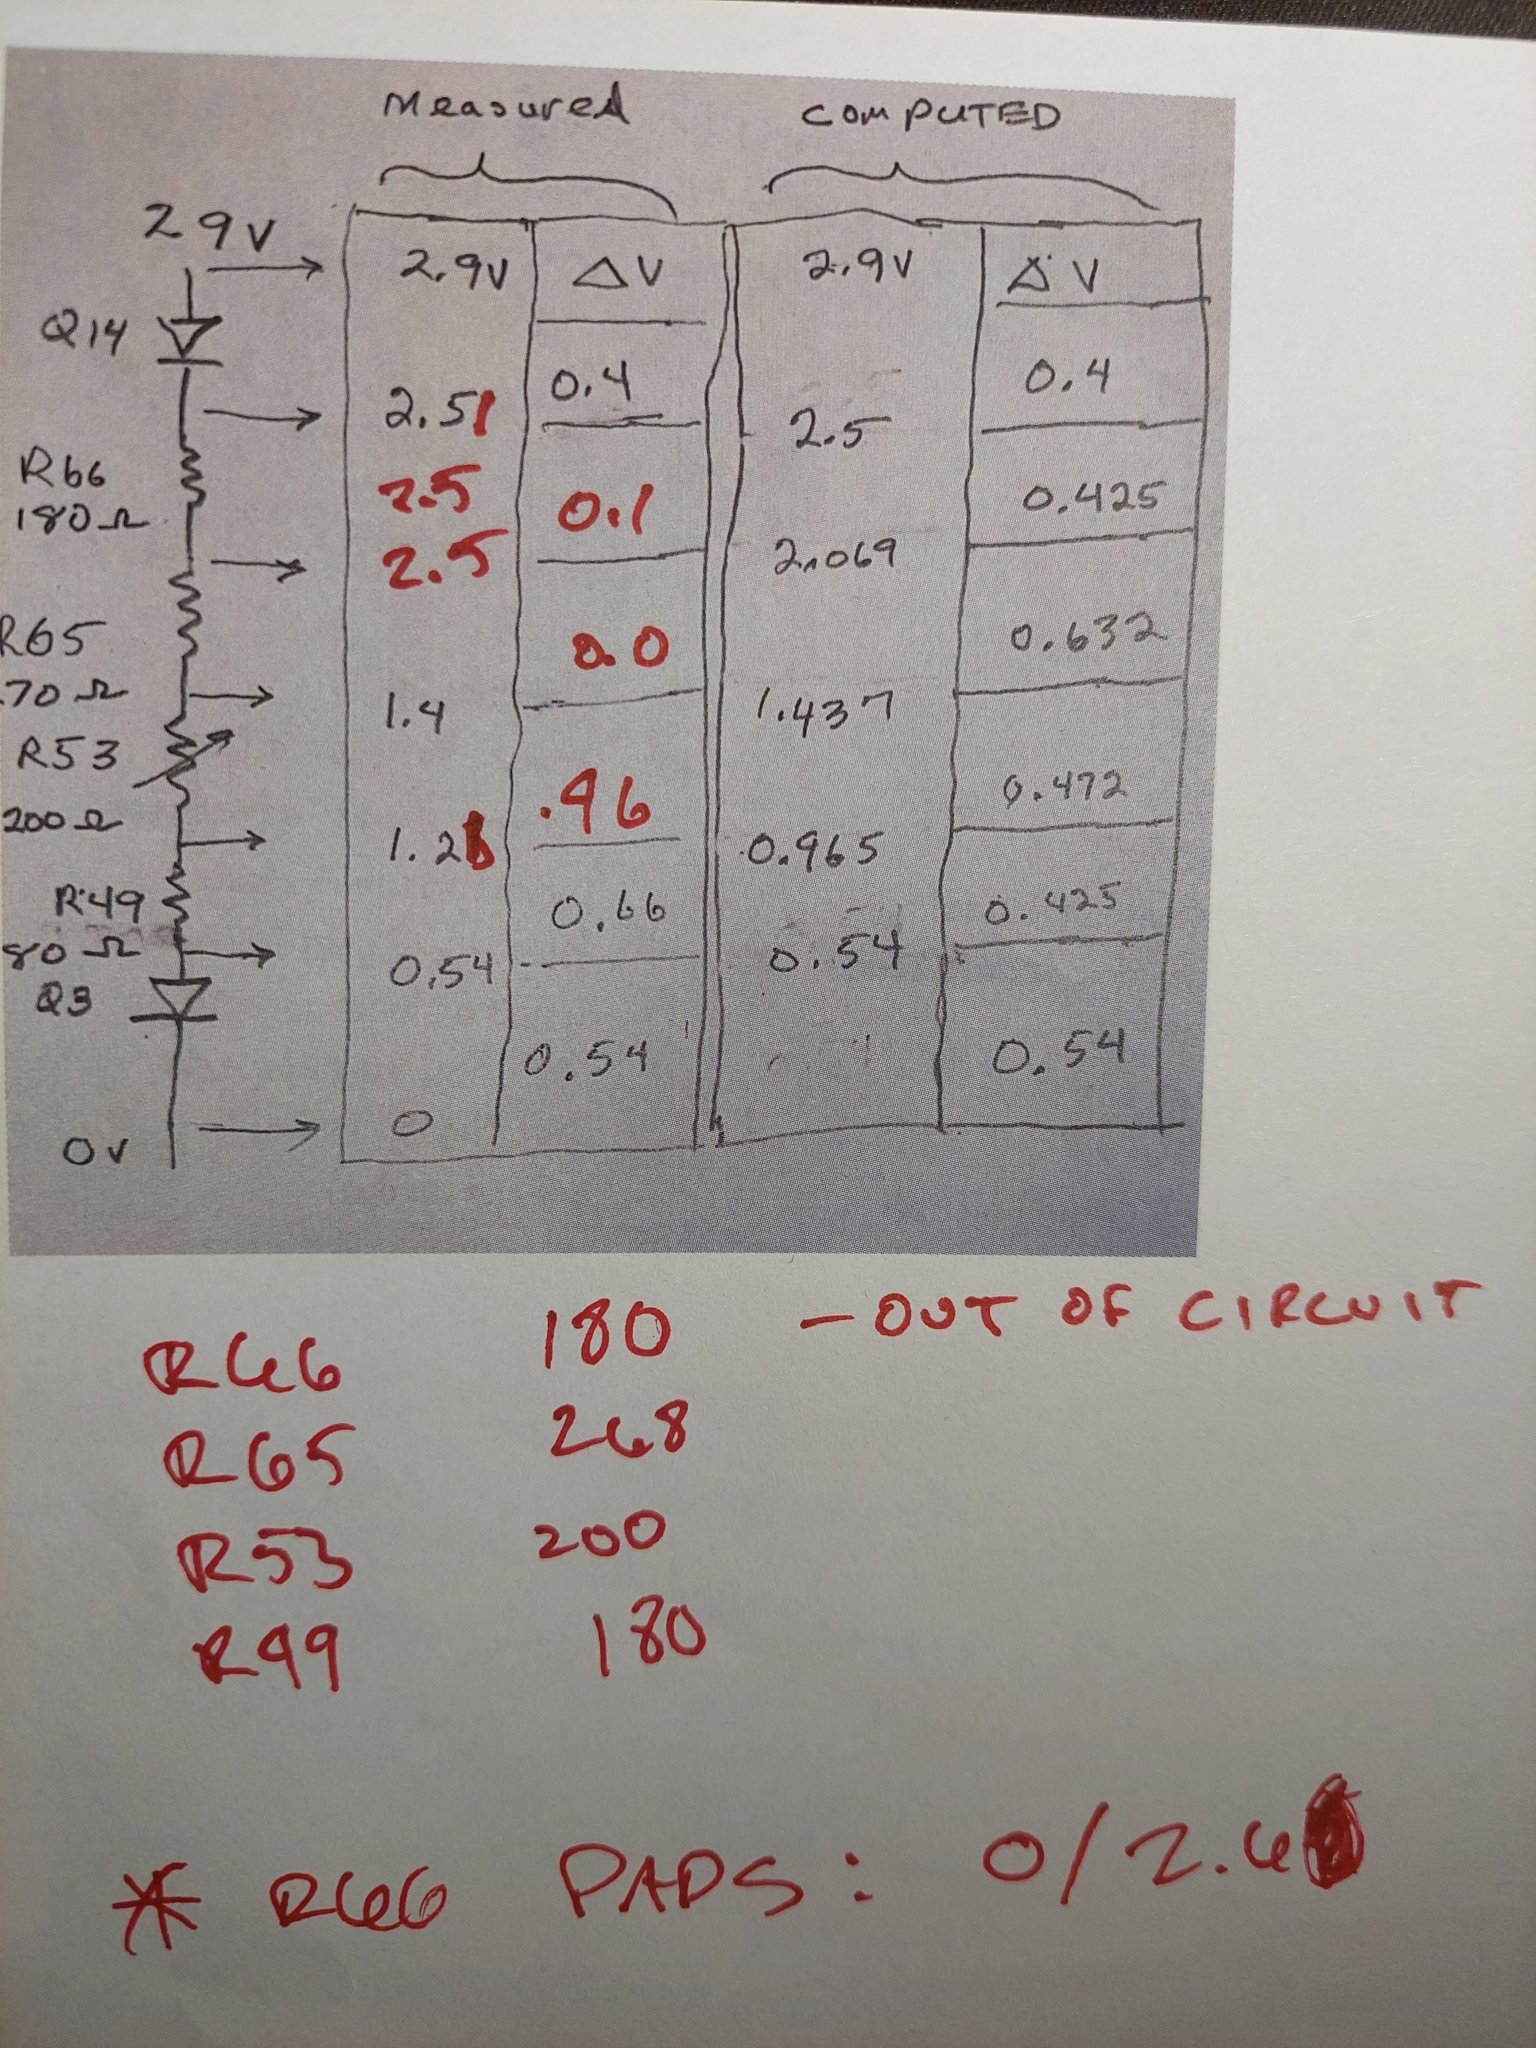 Measured COMPUTED
29V 2.9V ΔV 2.9V ΔV
Q14 0.4 0.4
2.51 2.5
R66 2.5 0.1 0.425
180Ω
2.5 2.069
R65 0.0 0.632
70Ω 1.4 1.437
R53 .96 0.472
200Ω 1.2 0.965
R49 0.66 0.425
80Ω 0.54 0.54
Q3
0.54 0.54
0V 0
R66 180 - OUT OF CIRCUIT
R65 268
R53 200
R49 180
* R66 PADS: 0/2.6